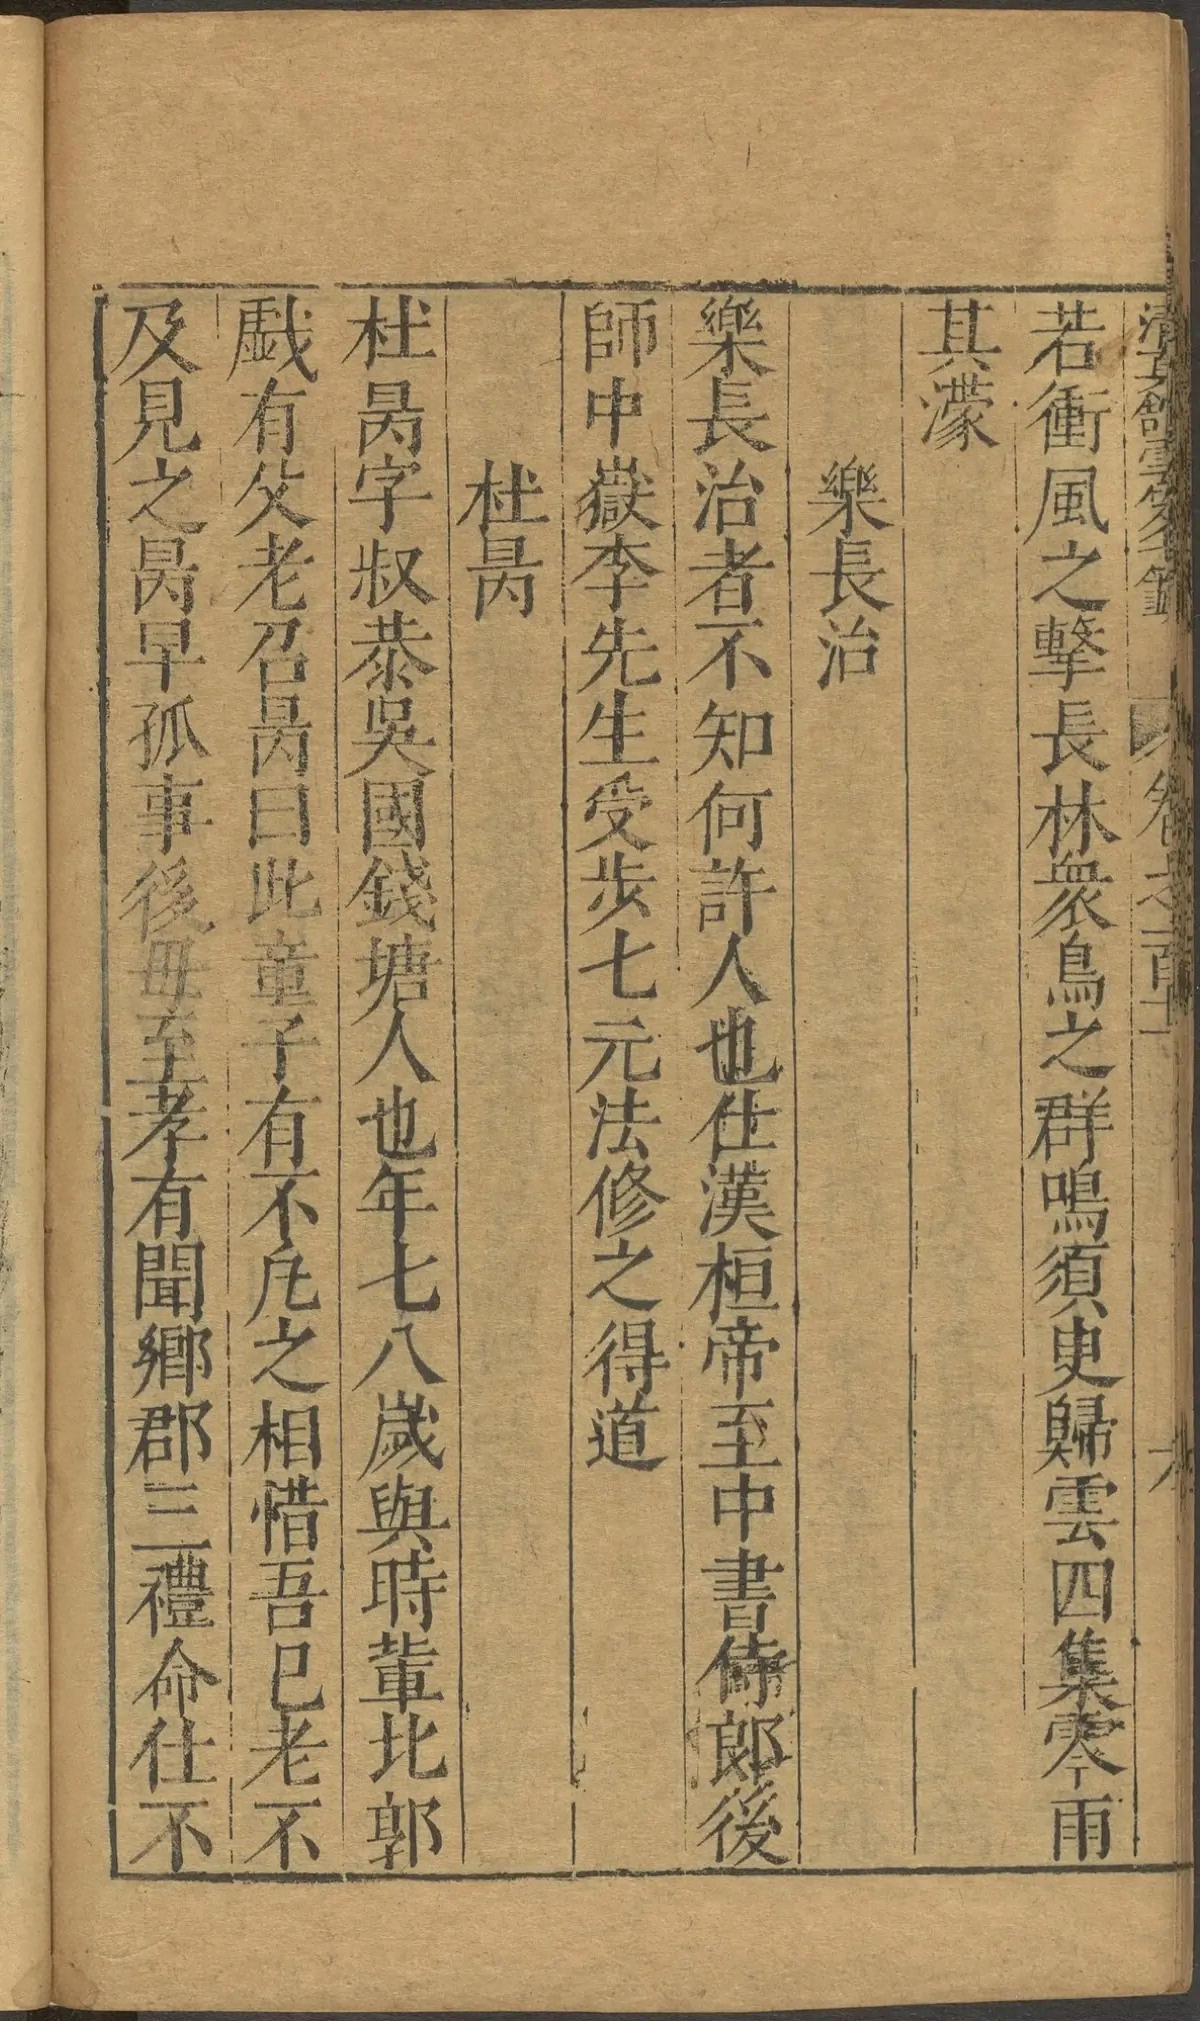 清真館雲笈七籤 卷之一百十 九
若衝風之擊長林衆鳥之群鳴須臾歸雲四集零雨
其濛
樂長治
樂長治者不知何許人也仕漢桓帝至中書侍郎後
師中嶽李先生受步七元法修之得道
杜昺
杜昺字叔恭吳國錢塘人也年七八歲與時輩北郭
戱有父老召昺曰此童子有不凢之相惜吾已老不
及見之昺早孤事後母至孝有聞鄉郡三禮命仕不